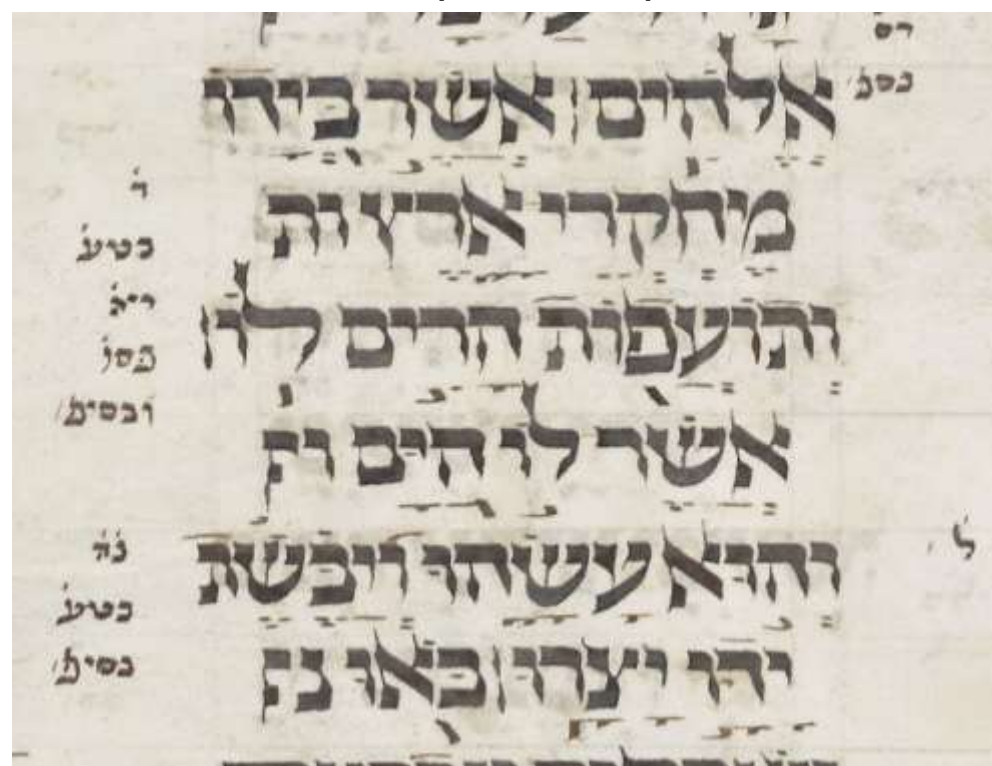 אלהים ׀ אשר בידו
מחקרי ארץ ות
ותועפות הרים לו׃
אשר לו הים ו
והוא עשהו ויבשת
ידיו יצרו׃ באו נ
ד̇
בטע̇
פסו̇
ובסיפ̇
ל̇
בטע̇
בסיפ̇